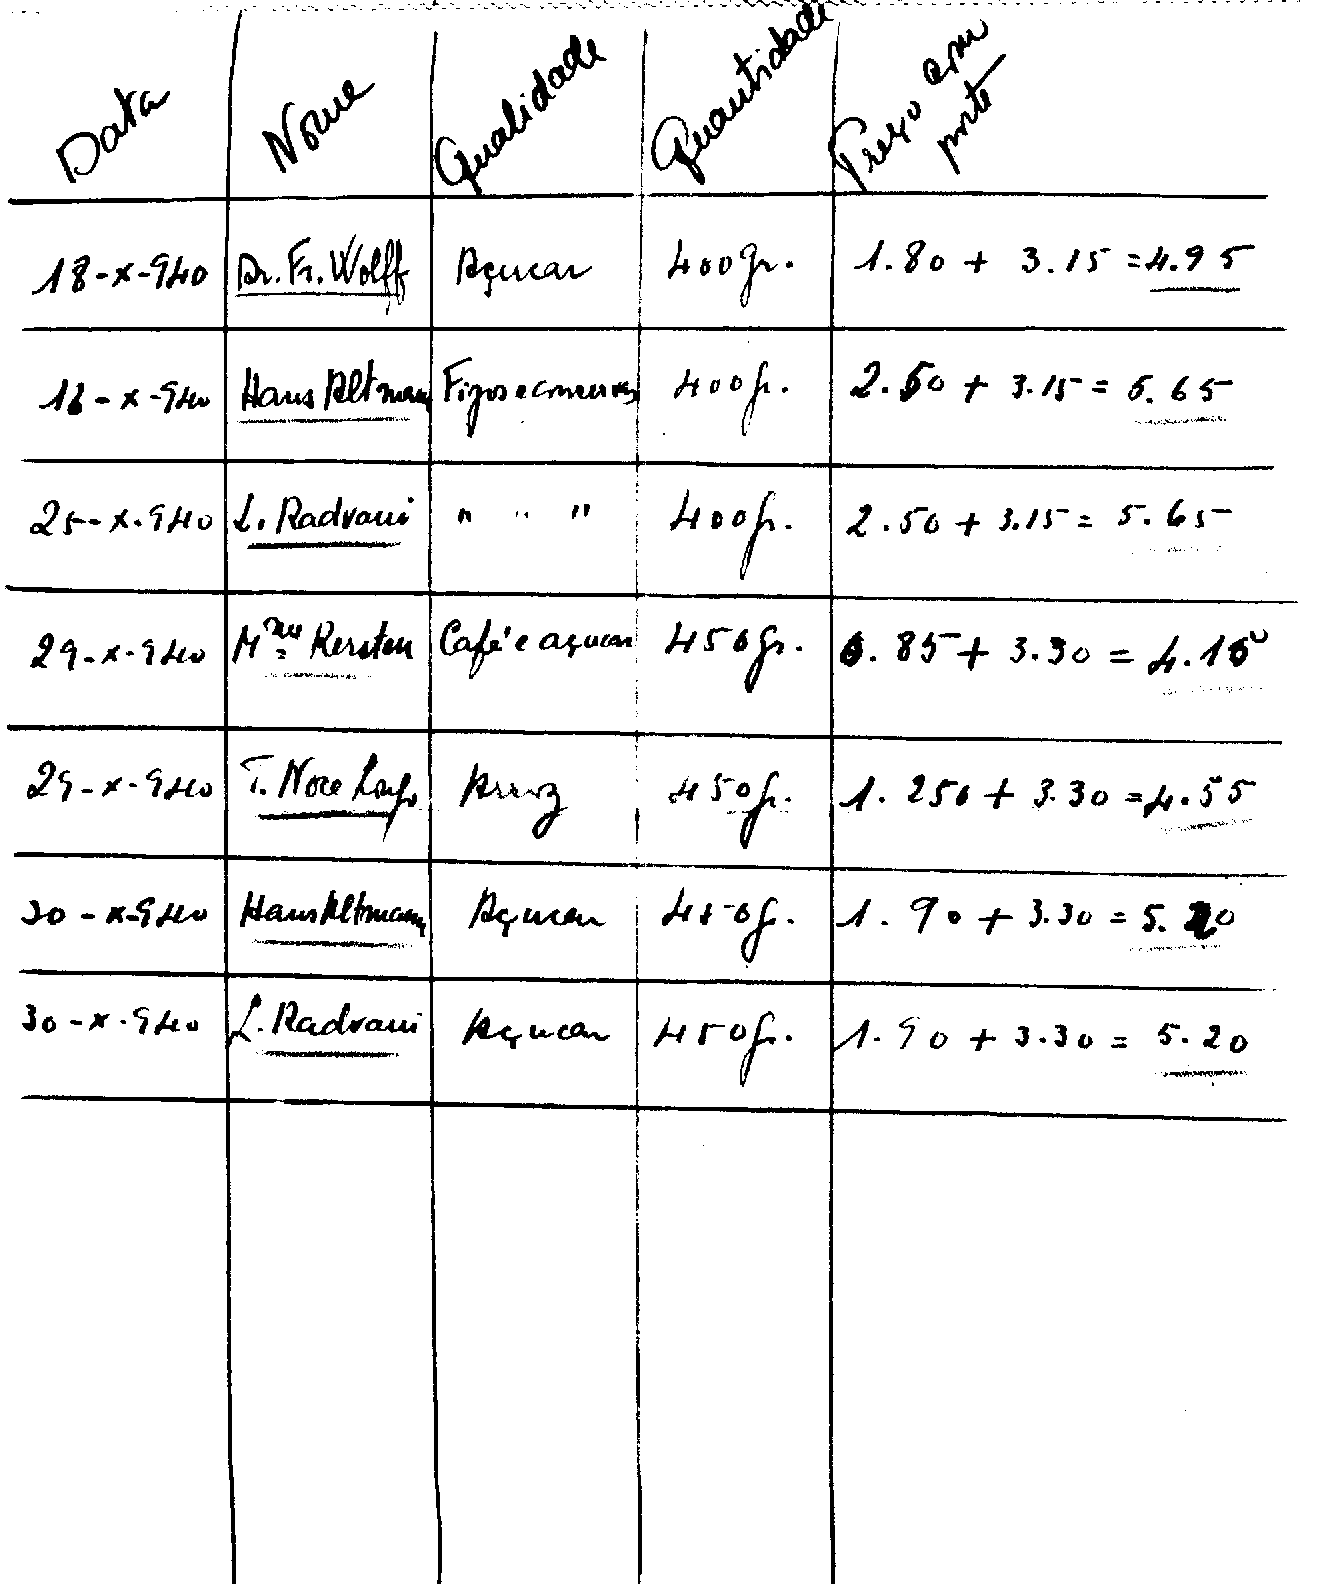 Data Nome Qualidade Quantidade Preço com porte
18-x-940 Dr. Fr. Wolff Açucar 400gr. 1.80 + 3.15 = 4.95
16-x-940 Hans Altmann Figos e 400gr. 2.50 + 3.15 = 5.65
25-x-940 L. Radvani " " " 400gr. 2.50 + 3.15 = 5.65
29-x-940 Mme Kersten Café e açucar 450gr. 0.85 + 3.30 = 4.15
29-x-940 T. Arroz 450gr. 1.250 + 3.30 = 4.55
30-x-940 Hans Altmann Açucar 450gr. 1.90 + 3.30 = 5.20
30-x-940 L. Radvani Açucar 450gr. 1.90 + 3.30 = 5.20